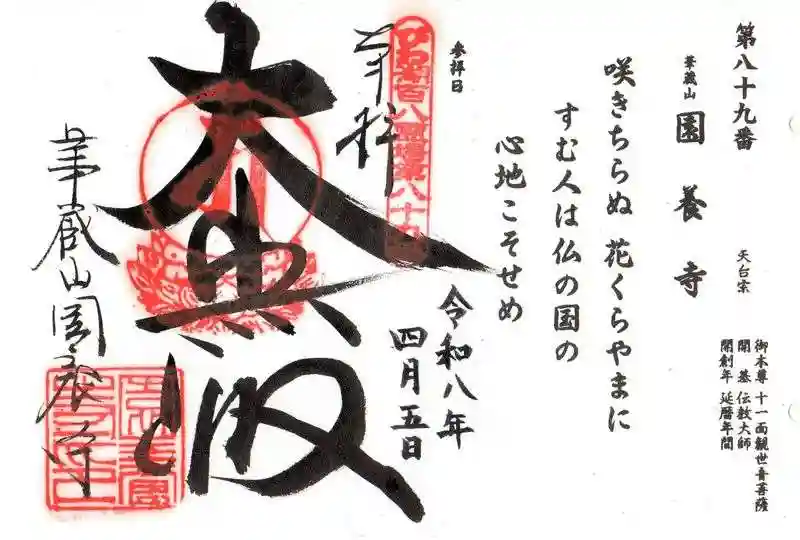 第八十九番
華蔵山
園養寺
天台宗
御本尊 十一面観世音菩薩
開基 伝教大師
開創年 延暦年間
咲きちらぬ 花くらやまに
すむ人は仏の国の
心地こそせめ
参拝日
令和八年
四月五日
奉拝
びわ湖百八霊場第八十九
大悲殿
華蔵山園養寺